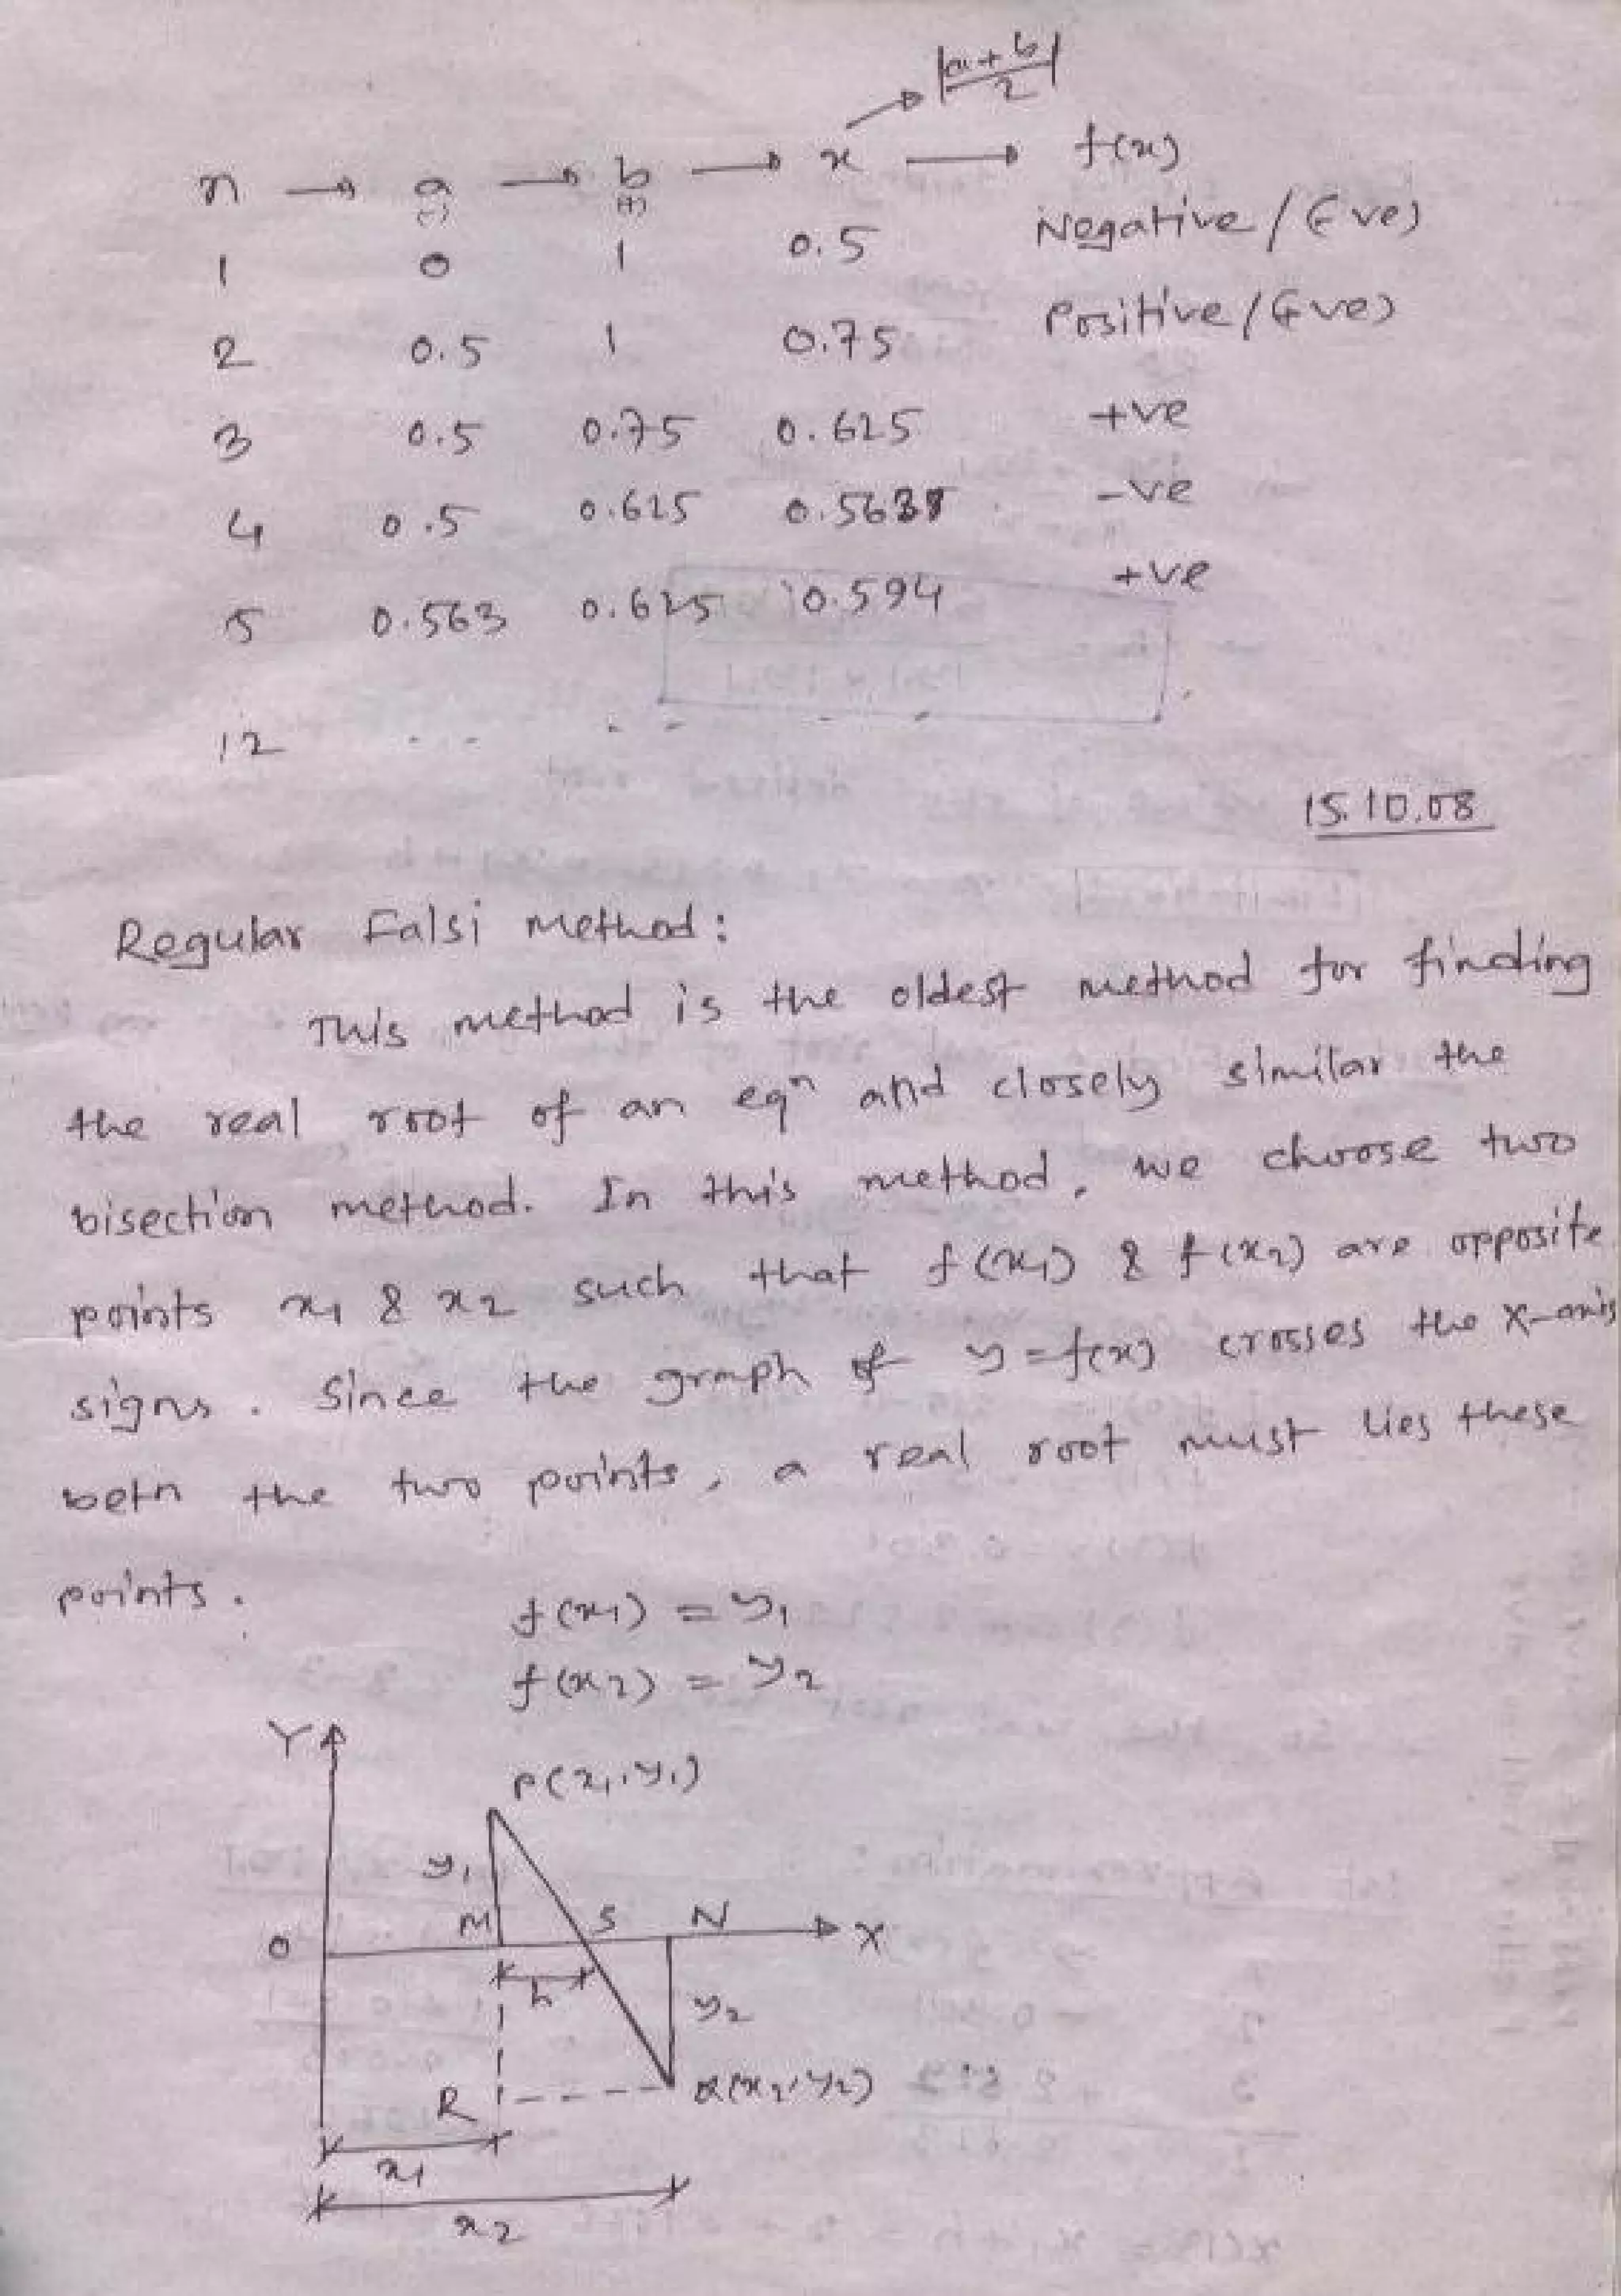 |a+b/2|
n → a → b → x → f(x)
(-) (+)
1 0 1 0.5 Negative/(-ve)
2 0.5 1 0.75 Positive/(+ve)
3 0.5 0.75 0.625 +ve
4 0.5 0.625 -ve
5 0.563 0.625 0.594 +ve
12 . . . . . .
15.10.08
Regular Falsi Method:
This method is the oldest method for finding
the real root of an eqⁿ and closely similar the
bisection method. In this method, we choose two
points x₁ & x₂ such that f(x₁) & f(x₂) are opposite
signs. Since the graph of y=f(x) crosses the X-axis
betn the two points, a real root must lies these
points.
f(x₁) = y₁
f(x₂) = y₂
Y
P(x₁,y₁)
y₁
M S N X
O
h
y₂
R Q(x₂,y₂)
x₁
x₂